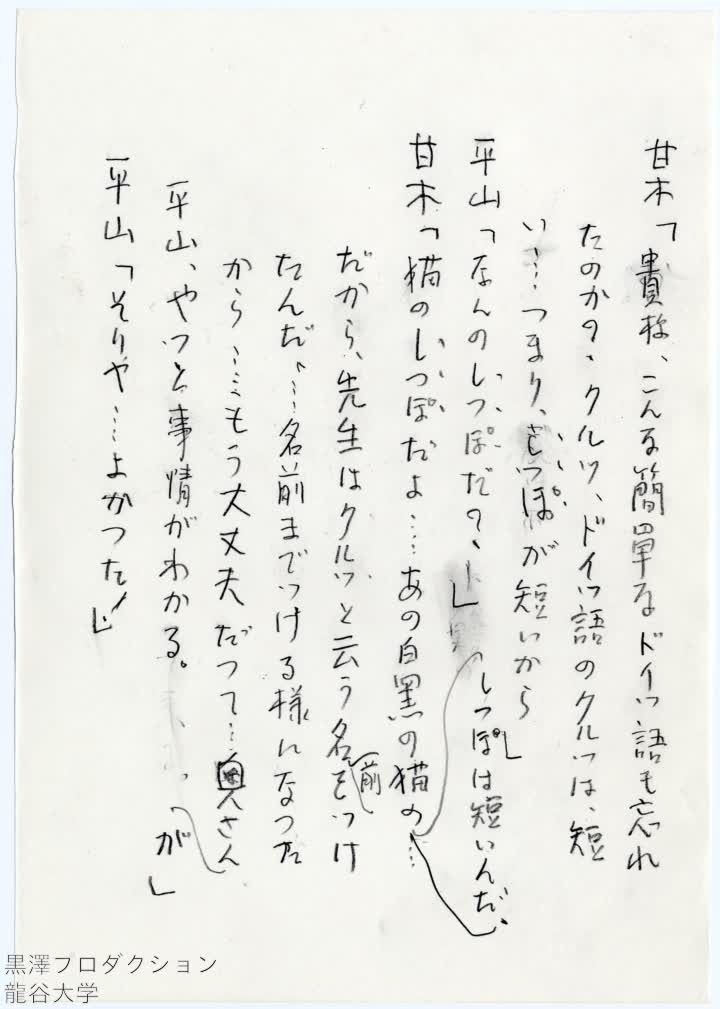 甘木「貴様、こんな簡単なドイツ語も忘れ
たのか？、クルツ、ドイツ語のクルツは、短
い……つまり、しっぽが短いから」
平山「なんのしっぽだ？」
甘木「猫のしっぽだよ……あの白黒の猫の…
しっぽは短いんだ、
だから、先生はクルツと云う名前をつけ
たんだ、…名前までつける様になつた
から……もう大丈夫だつて…奥さん
が」
平山、やつと事情がわかる。
平山「そりや…よかつた！」
黒澤プロダクション
龍谷大学